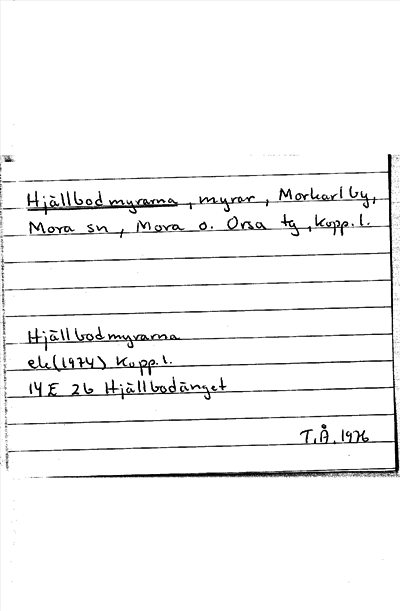 Hjällbodmyrarna, myrar, Morkarlby,
Mora sn, Mora o. Orsa tg, Kopp. l.
Hjällbodmyrarna
ek (1974) Kopp. l.
14E 2b Hjällbodänget
T.Å. 1976